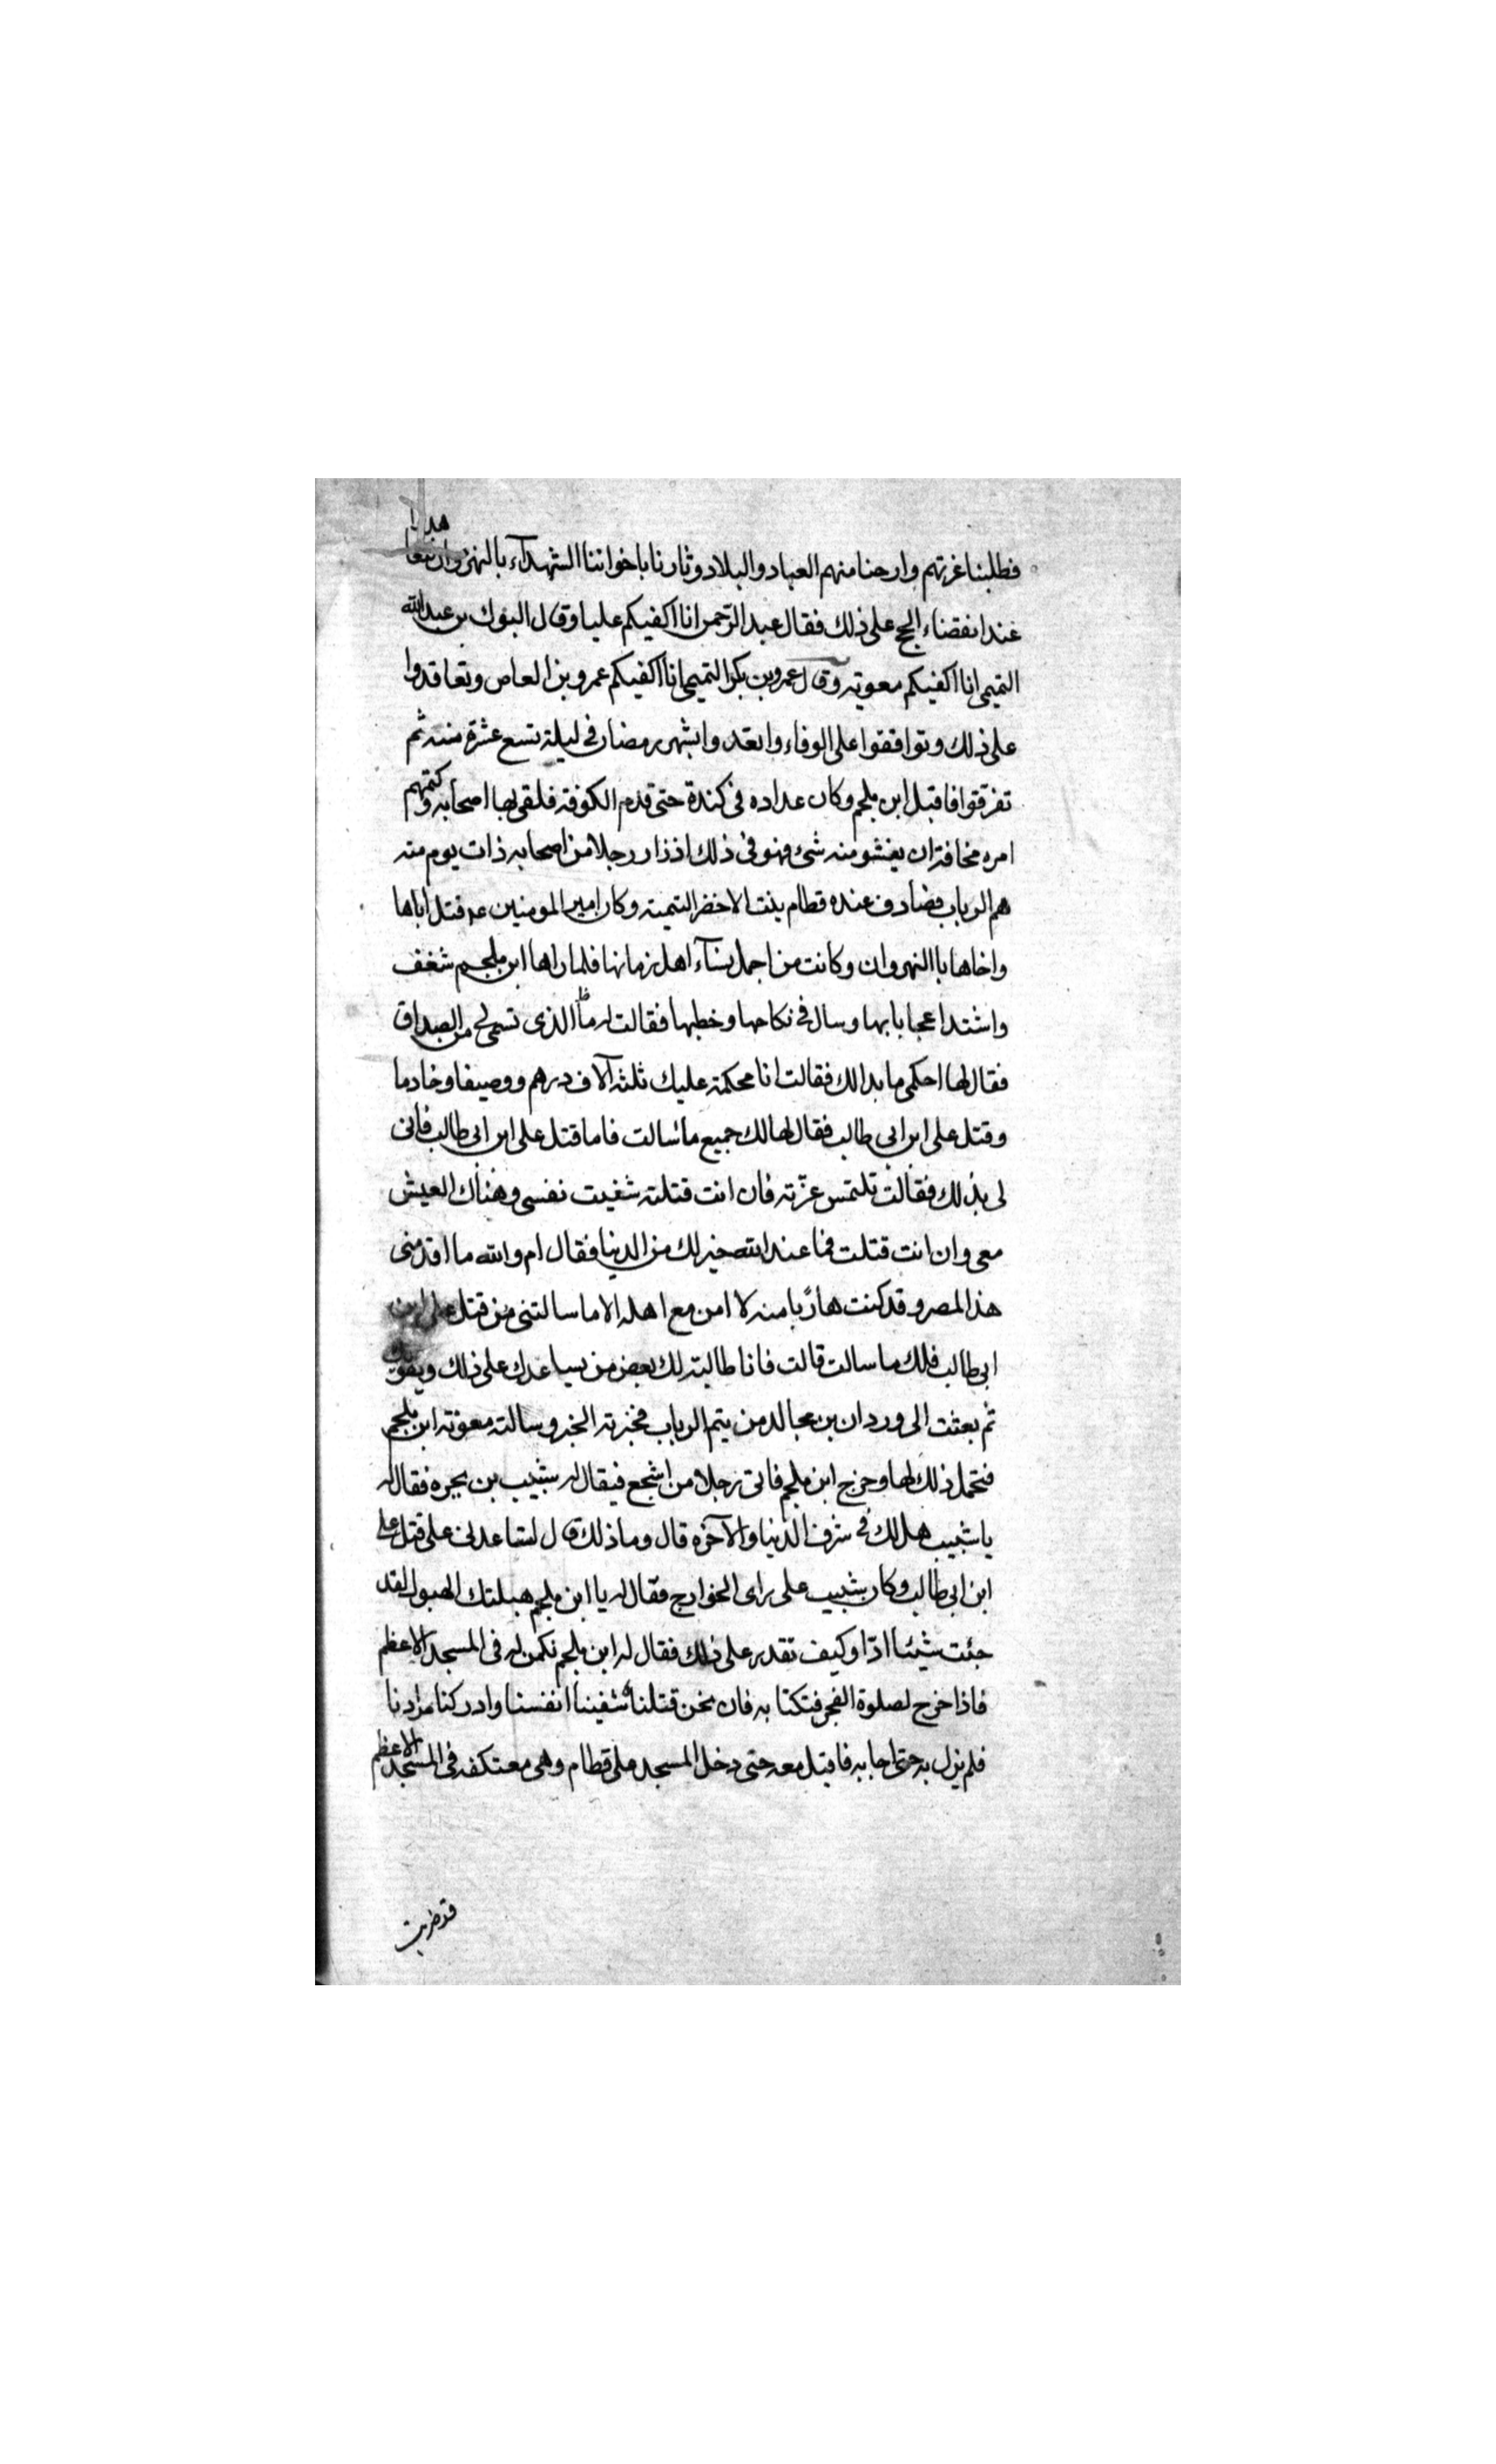 فطلبنا غرتهم وارحنا منهم العباد والبلاد وثارنا باخواننا الشهدآء بالنهروان
عند انقضاء الحج على ذلك فقال عبد الرحمن انا اكفيكم عليا وقال البرك بن عبد الله
التميمى انا اكفيكم معوية وقال عمرو بن بكر التميمى انا اكفيكم عمرو بن العاص وتعاقدوا
على ذلك وتوافقوا على الوفاء واتعدوا بشهر رمضان فى ليلة تسع عشرة منه ثم
تفرقوا فاقبل ابن ملجم وكان عداده فى كندة حتى قدم الكوفة فلقى بها اصحابه وكتمهم
امره مخافة ان يفشو منه شئ فهو فى ذلك اذ زار رجلا من اصحابه ذات يوم منه
هم الرباب فصادف عنده قطام بنت الاخضر التيمية وكان امير المومنين ع قتل اباها
واخاها باالنهروان وكانت من اجمل نسآء اهل زمانها فلما راها ابن ملجم شغف
واشتد اعجابا بها وسال فى نكاحها وخطبها فقالت له ما الذى تسمى لى من الصداق
فقال لها احكمى ما بدا لك فقالت انا محكمة عليك ثلثة آلاف درهم ووصيفا وخادما
وقتل على ابن ابى طالب فقال لها لك جميع ما سالت فاما قتل على ابن ابى طالب فانى
لى بذلك فقالت تلتمس غرته فان انت قتلته شفيت نفسى وهناك العيش
معى وان انت قتلت فما عند الله خير لك من الدنيا فقال ام والله ما اقدمنى
هذا المصر وقد كنت هاربا منه لا امن مع اهله الا ما سالتنى من قتل على ابن
ابى طالب فلك ما سالت قالت فانا طالبة لك بعض من يساعدك على ذلك ويقويك
ثم بعثت الى وردان بن مجالد من يتم الرباب فخبرته الخبر وسالته معونة ابن ملجم
فتحمل ذلك لها وخرج ابن ملجم فاتى رجلا من اشجع فيقال له شبيب بن بجره فقال له
يا شبيب هل لك فى شرف الدنيا والآخره قال وما ذلك قال لتساعدنى على قتل على
ابن ابى طالب وكان شبيب على راى الخوارج فقال له يا ابن ملجم هبلتك الهبول لقد
جئت شيئا ادّا وكيف تقدر على ذلك فقال له ابن ملجم نكمن له فى المسجد الاعظم
فاذا خرج لصلوة الفجر فتكنا به فان نحن قتلناه شفينا انفسنا وادركنا
فلم يزل به حتى اجابه فاقبل معه حتى دخل المسجد على قطام وهى معتكفه فى المسجد الاعظم
قد ضربت